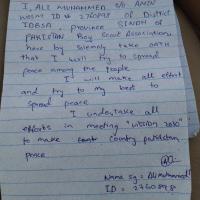 I, ALI MUHAMMED S/O. AMIN
WOSM ID # 2760898 of District
IDBSA, Province SINDH of
PAKISTAN Boy Scout Association,
have by Solemnly take OATH
that I will try to spread
peace among the people
I will make all effort
and try to my best to
spread peace
I undertake all
efforts in meeting "vission 2030"
to make country pakistan
peace
Name Sg = Ali Muhammed
ID = 2760898